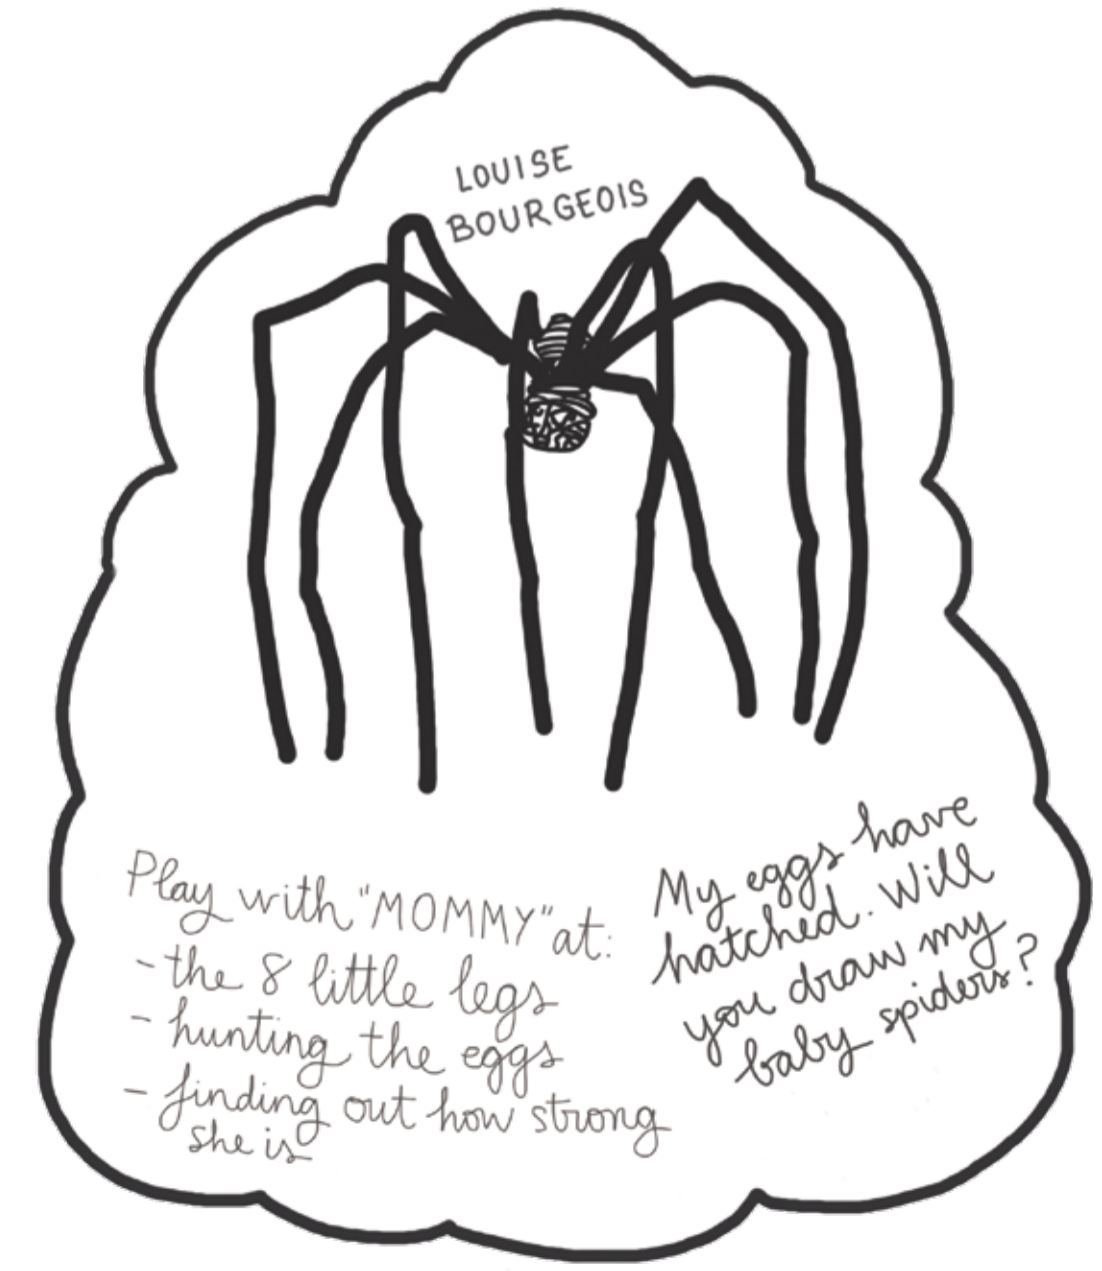 LOUISE
BOURGEOIS
Play with "MOMMY" at:
- the 8 little legs
- hunting the eggs
- finding out how strong
she is
My eggs have
hatched. Will
you draw my
baby spiders?